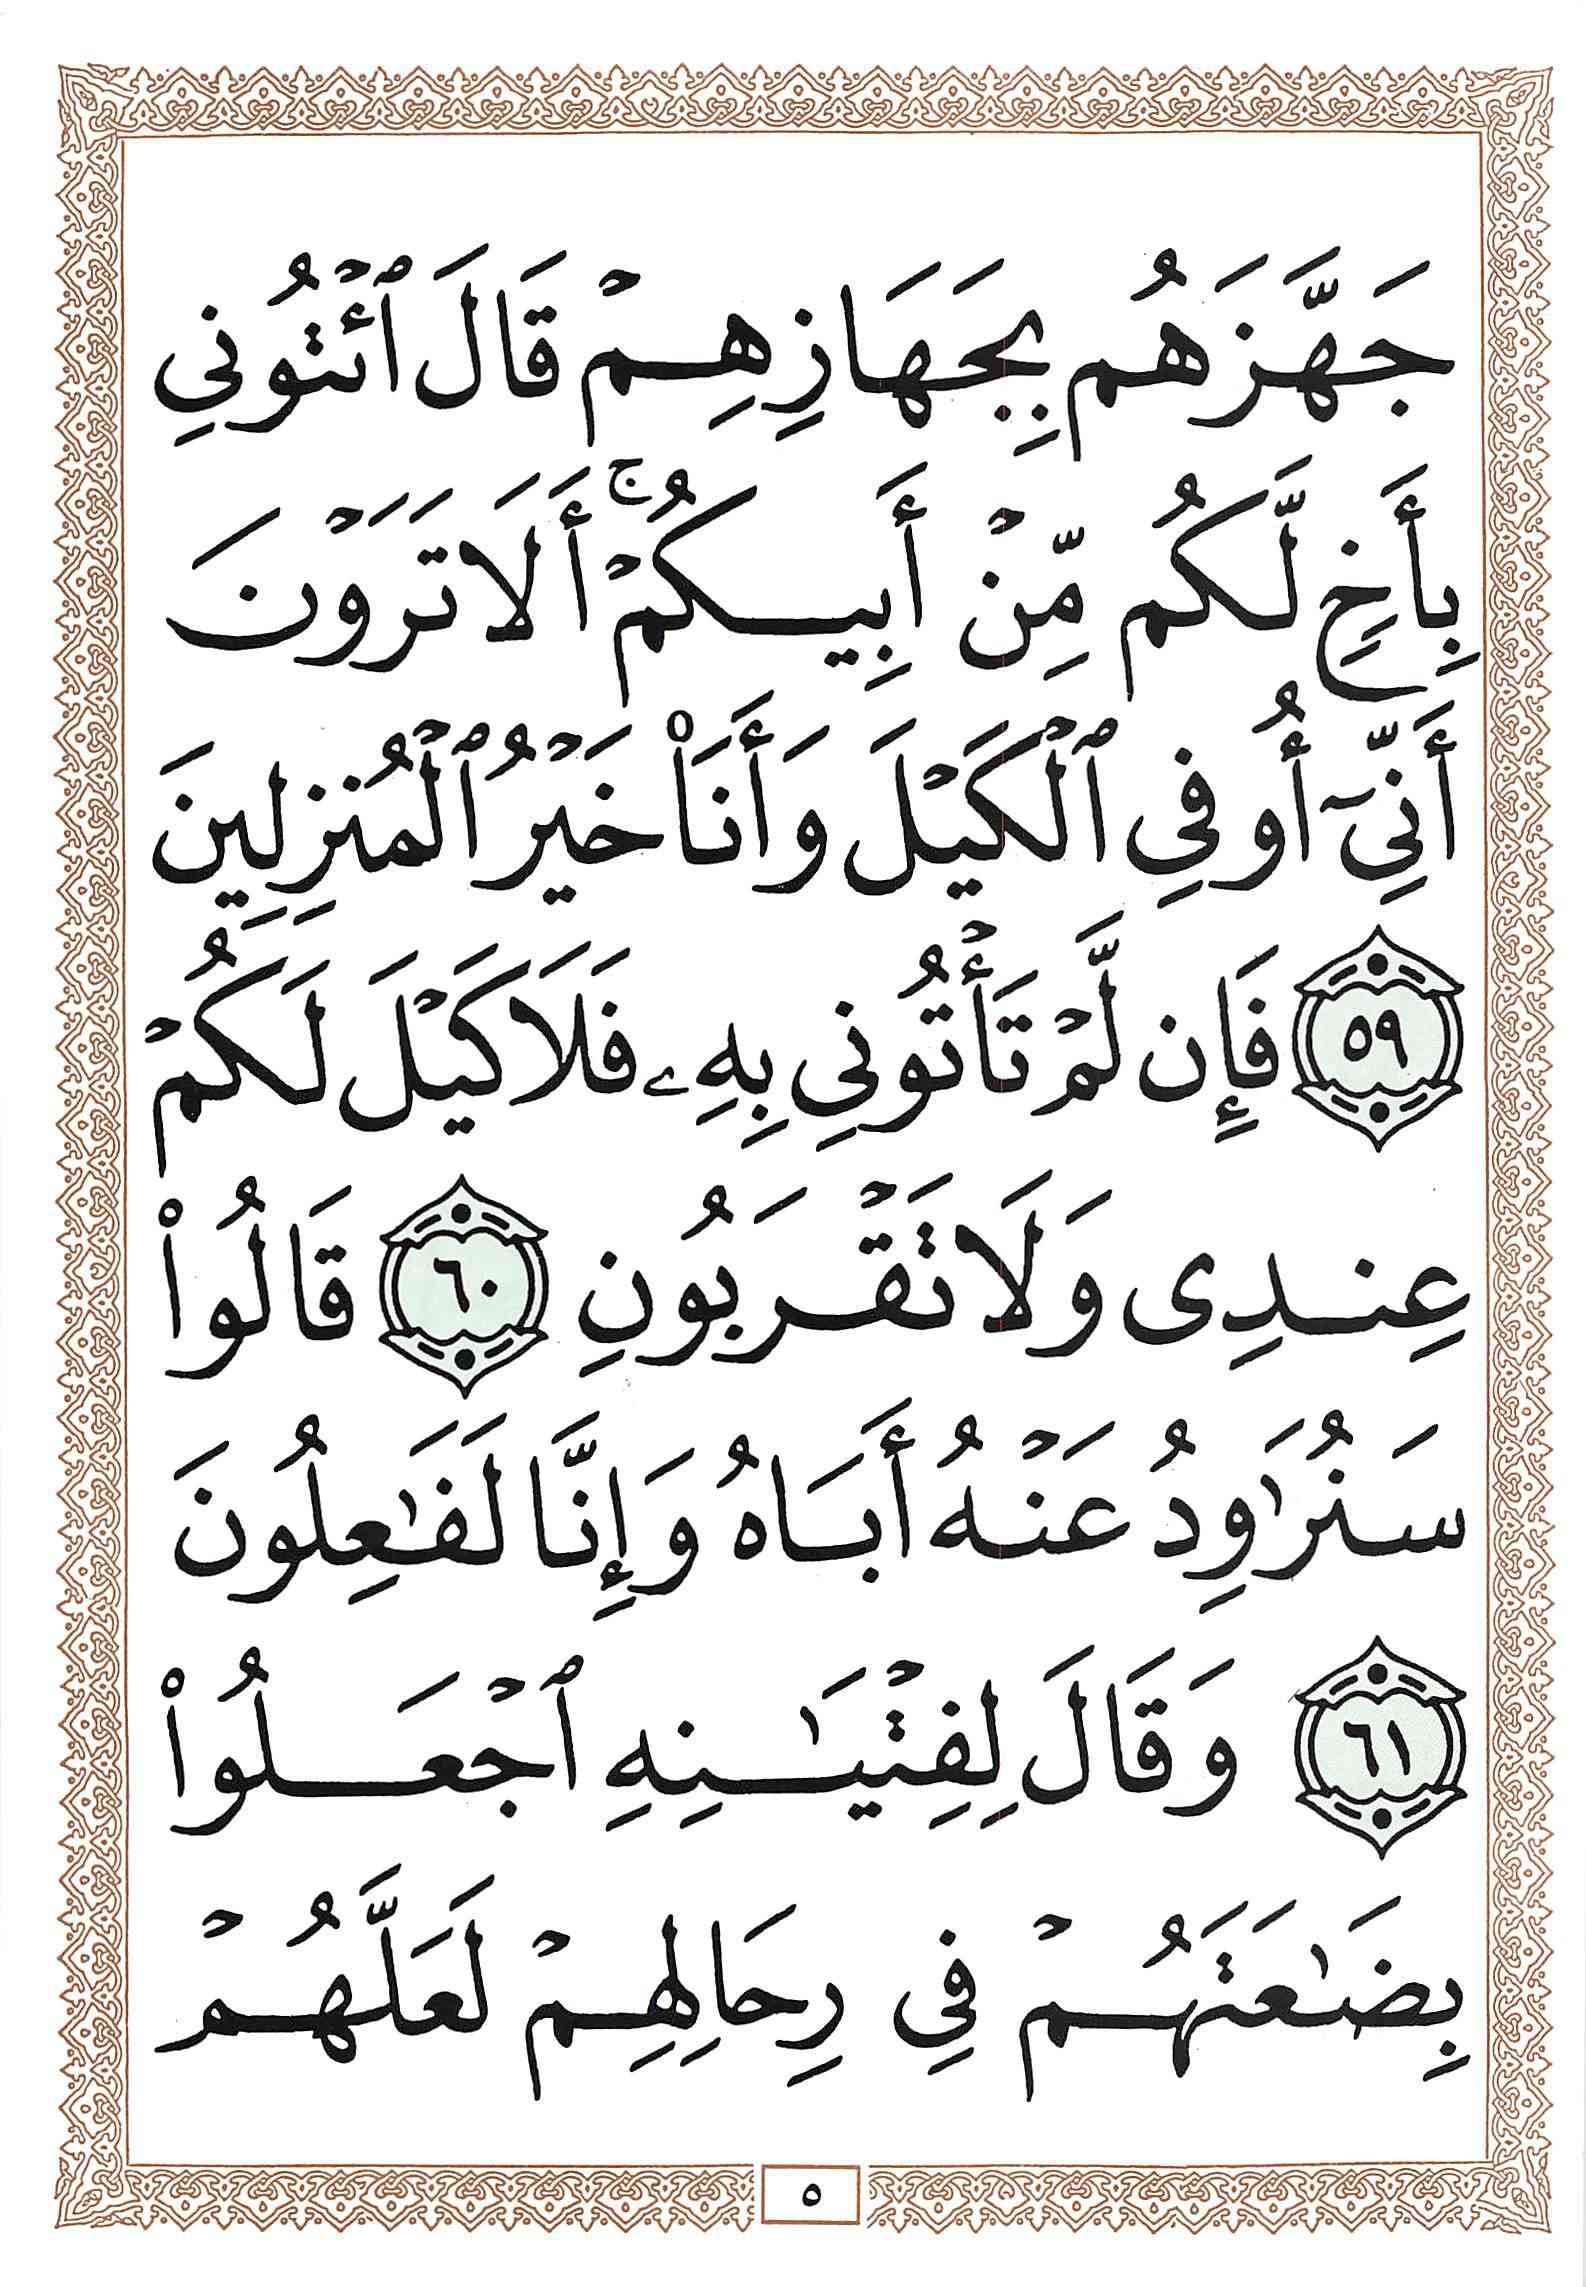 جَهَّزَهُم بِجَهَازِهِمْ قَالَ ٱئْتُونِي
بِأَخٍ لَّكُم مِّنْ أَبِيكُمْ ۚ أَلَا تَرَوْنَ
أَنِّىٓ أُوفِى ٱلْكَيْلَ وَأَنَا۠ خَيْرُ ٱلْمُنزِلِينَ
٥٩ فَإِن لَّمْ تَأْتُونِى بِهِۦ فَلَا كَيْلَ لَكُمْ
عِندِى وَلَا تَقْرَبُونِ ٦٠ قَالُوا۟
سَنُرَٰوِدُ عَنْهُ أَبَاهُ وَإِنَّا لَفَٰعِلُونَ
٦١ وَقَالَ لِفِتْيَٰنِهِ ٱجْعَلُوا۟
بِضَٰعَتَهُمْ فِى رِحَالِهِمْ لَعَلَّهُمْ
٥